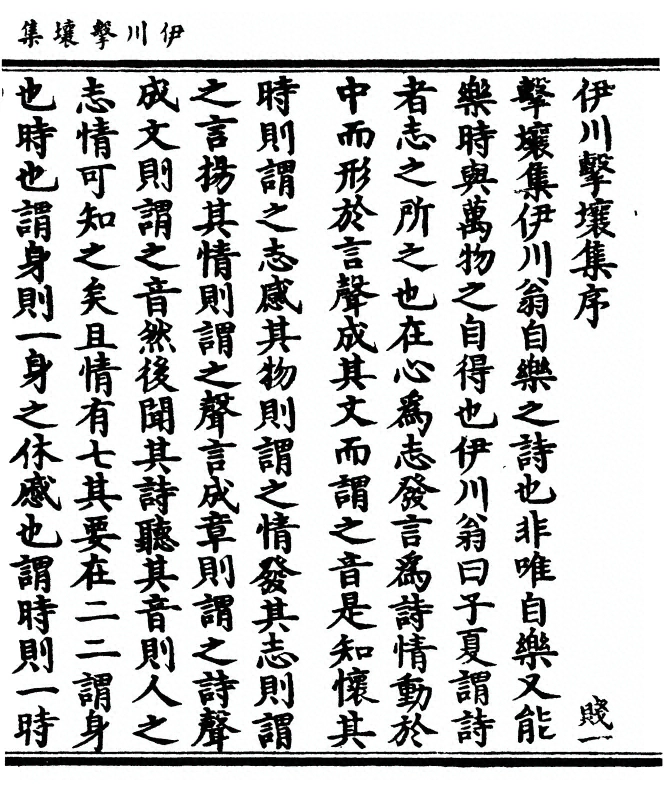 伊川擊壤集
伊川擊壤集序
賤一
擊壤集伊川翁自樂之詩也非唯自樂又能
樂時與萬物之自得也伊川翁曰子夏謂詩
者志之所之也在心爲志發言爲詩情動於
中而形於言聲成其文而謂之音是知懷其
時則謂之志感其物則謂之情發其志則謂
之言揚其情則謂之聲言成章則謂之詩聲
成文則謂之音然後聞其詩聽其音則人之
志情可知之矣且情有七其要在二二謂身
也時也謂身則一身之休感也謂時則一時